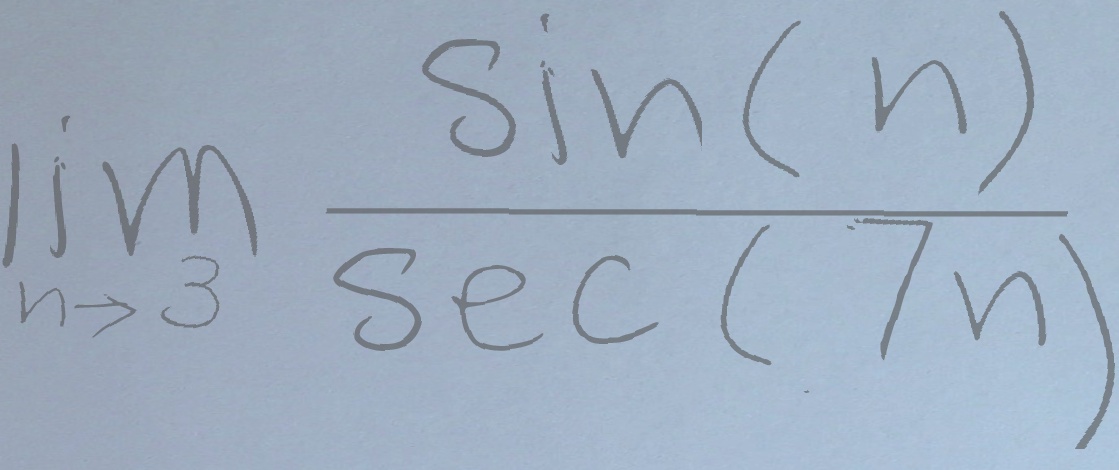 lim n→3 sin(n) / sec(7n)